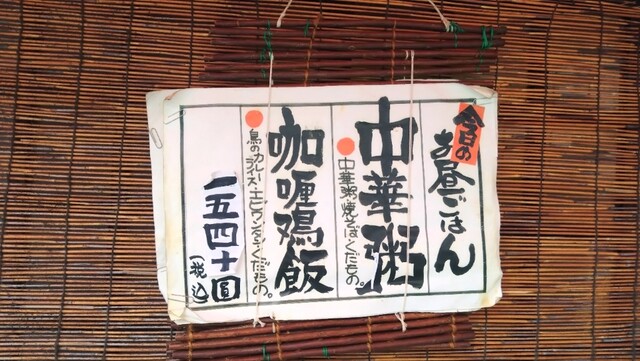 今日の
お昼ごはん
中華粥
中華粥・焼そば・くだもの。
咖喱鶏飯
鳥のカレーライス・エビワンタン・くだもの。
一五四十圓
(税込)